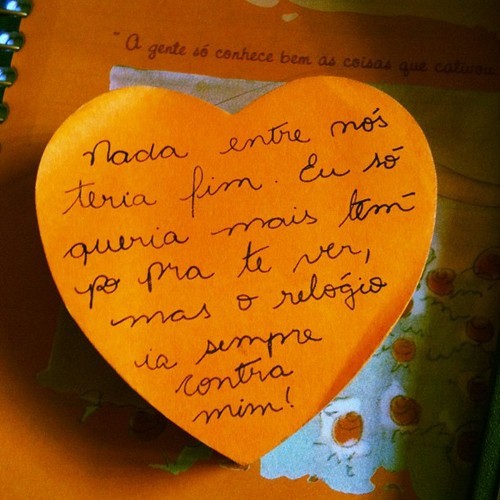 "A gente só conhece bem as coisas que cativou
Nada entre nós
teria fim. Eu só
queria mais tem-
po pra te ver,
mas o relógio
ia sempre
contra
mim!